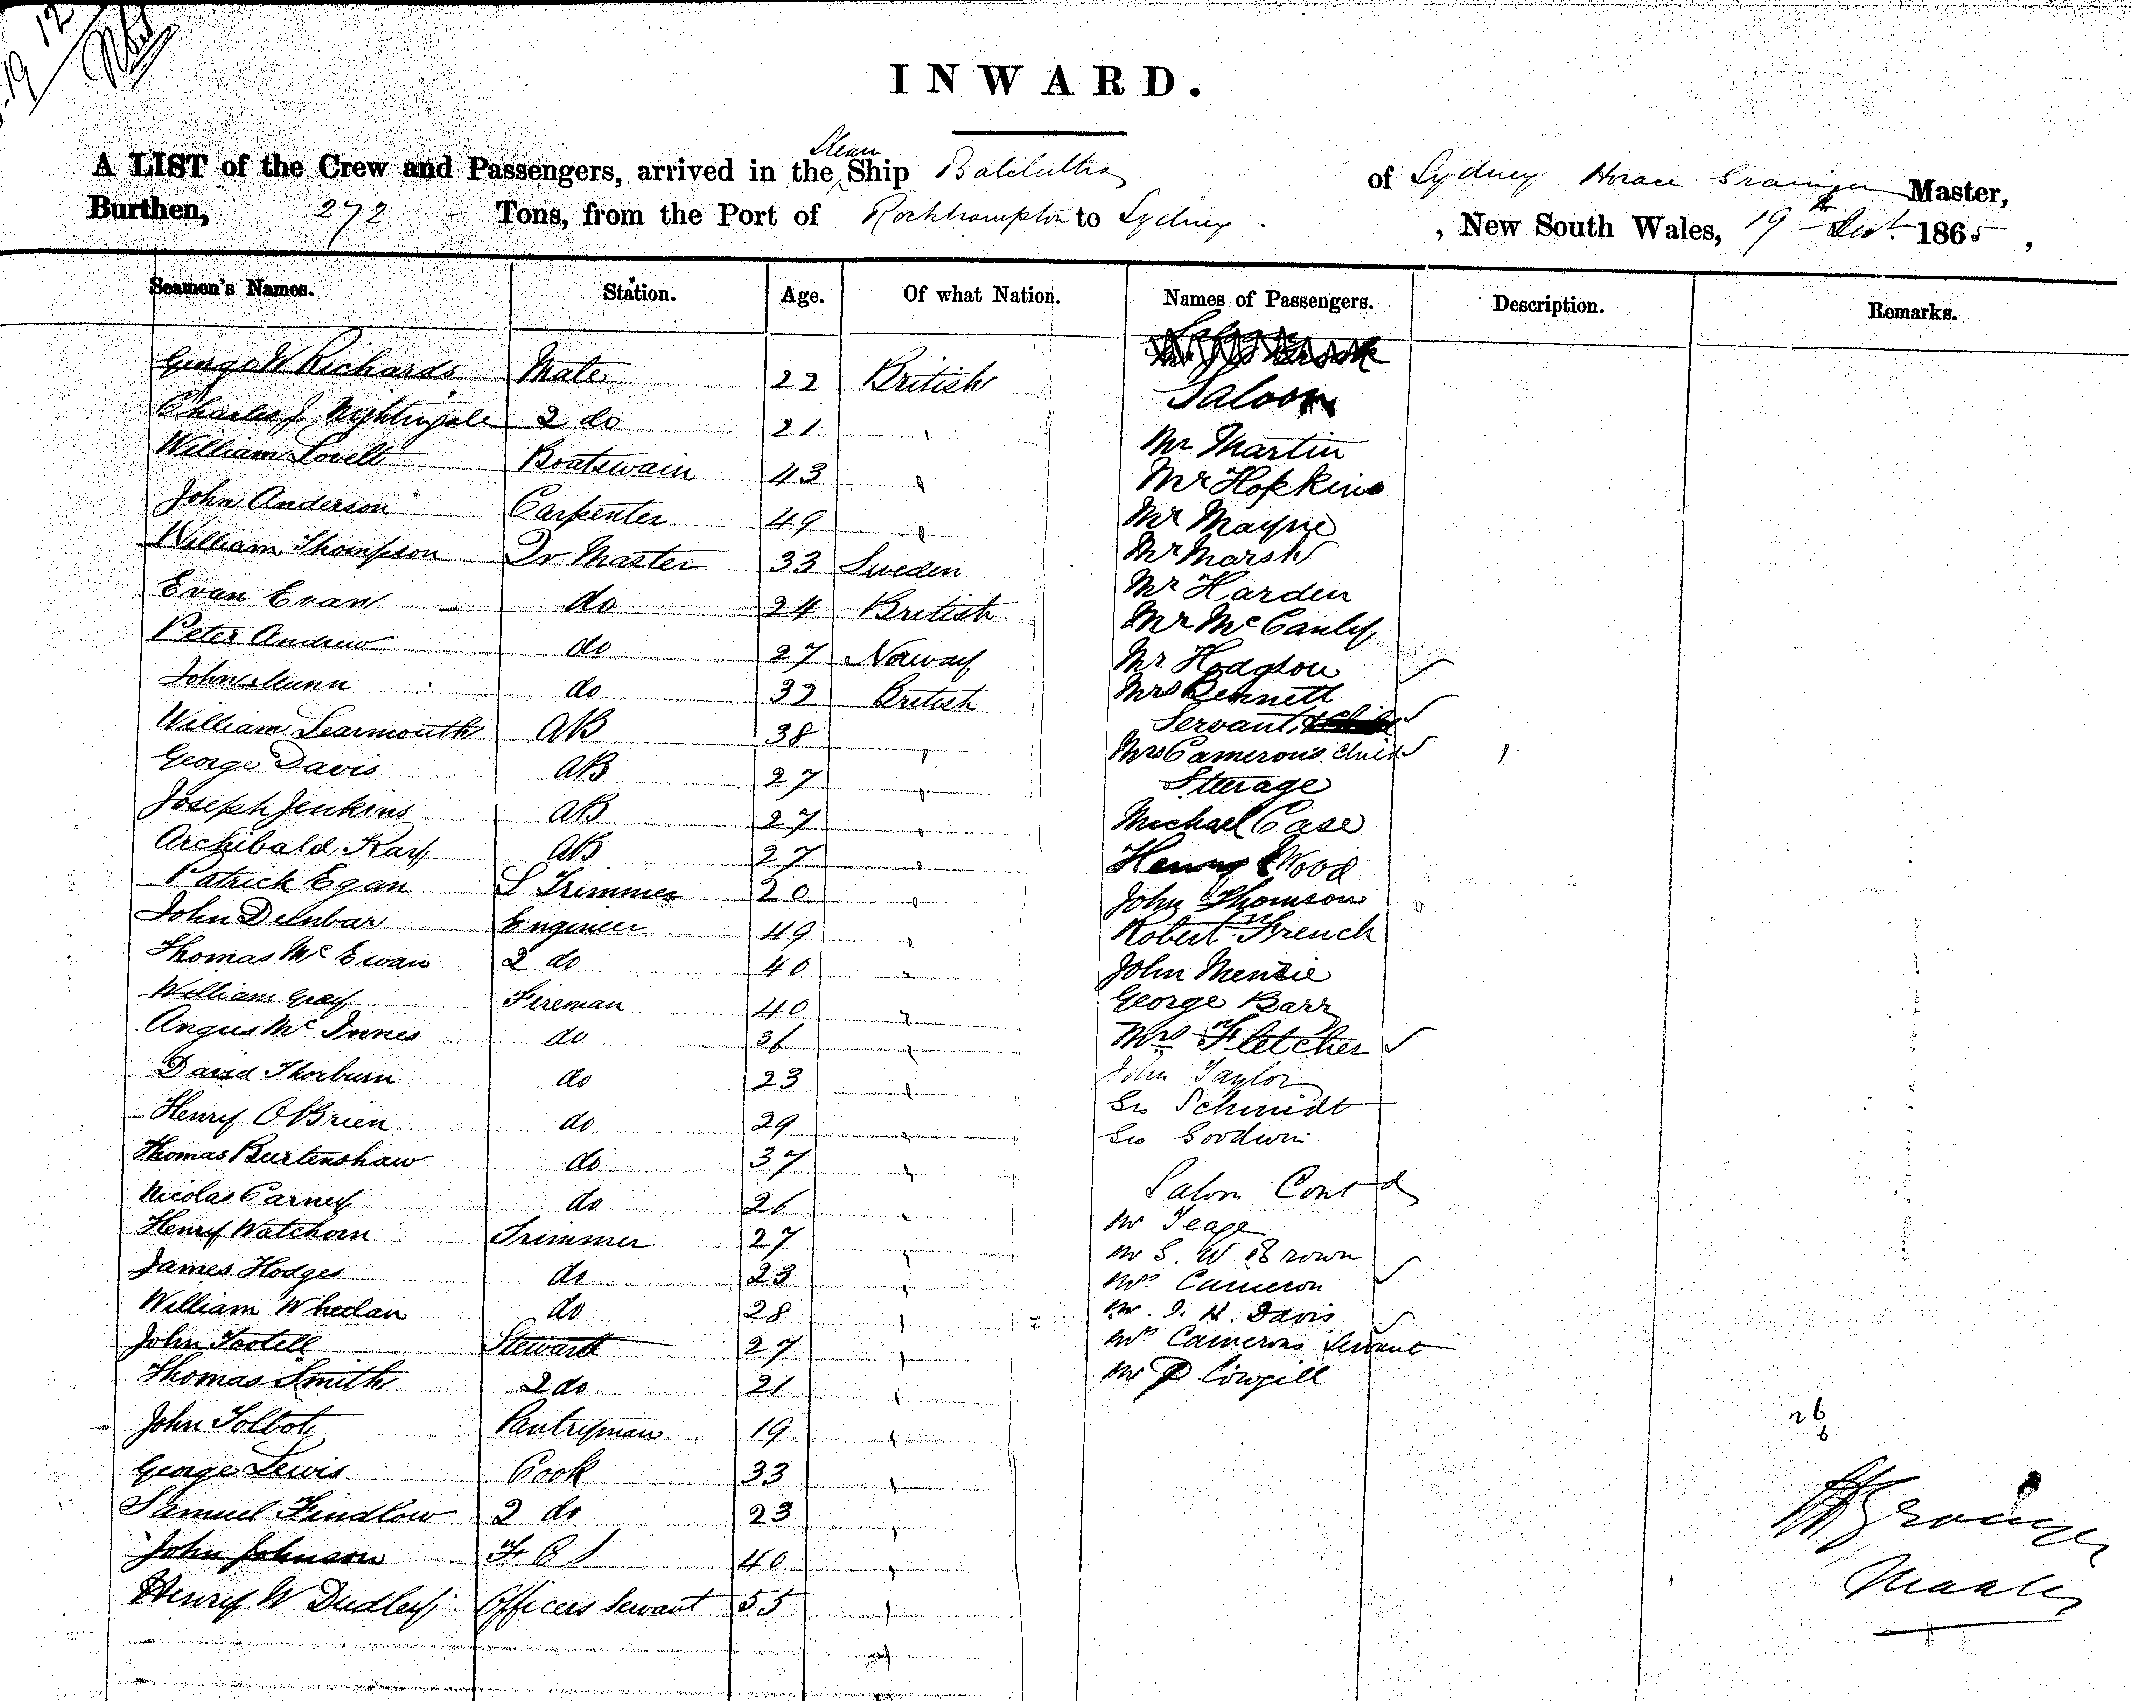 19/12
INWARD.
A LIST of the Crew and Passengers, arrived in the Steam Ship Balclutha of Sydney Horace Grainger Master,
Burthen, 272 Tons, from the Port of Rockhampton to Sydney. , New South Wales, 19th Decr. 1865,
Seamen's Names. Station. Age. Of what Nation. Names of Passengers. Description. Remarks.
George W Richards Mate 22 British Saloon
Charles J Nightingale 2 do 21 " Mr Martin
William Lovell Boatswain 43 " Mr Hopkins
John Anderson Carpenter 49 " Mr Mayne
William Thompson Qr Master 33 Sweden Mr Marsh
Evan Evan do 24 British Mr Harden
Peter Andrew do 27 Norway Mr McCauly
John Munn do 32 British Mr Hodgson
William Learmouth AB 38 " Mrs Bennett
Servant
George Davis AB 27 " Mrs Camerons Child
Joseph Jenkins AB 27 " Steerage
Archibald Kay AB 27 " Michael Case
Patrick Egan S Trimmer 20 " Henry Wood
John Dunbar Engineer 49 " John Thomson
Thomas McEwan 2 do 40 " Robert French
William Gray Fireman 40 " John Menzie
Angus McInnes do 36 " George Barr
Mrs Fletcher
David Thorburn do 23 " John Taylor
Henry O'Brien do 29 " Geo Schmidt
Geo Goodwin
Thomas Burtenshaw do 37 " Saloon Contd
Nicolas Carney do 26 "
Henry Watchorn Trimmer 27 " Mr Teage
Mr S. W Brown
James Hodges do 23 " Mrs Cameron
William Whelan do 28 " Mr. J. H. Davis
John Tootell Steward 27 " Mrs Camerons Servant
Thomas Smith 2 do 21 " Mr P Cowgill
John Tolbot Pantryman 19 " 26
George Lewis Cook 33 "
Samuel Findlow 2 do 23 " H Grainger
John Johnson F C S 40 " Master
Henry W Dudley Officers Servant 55 "